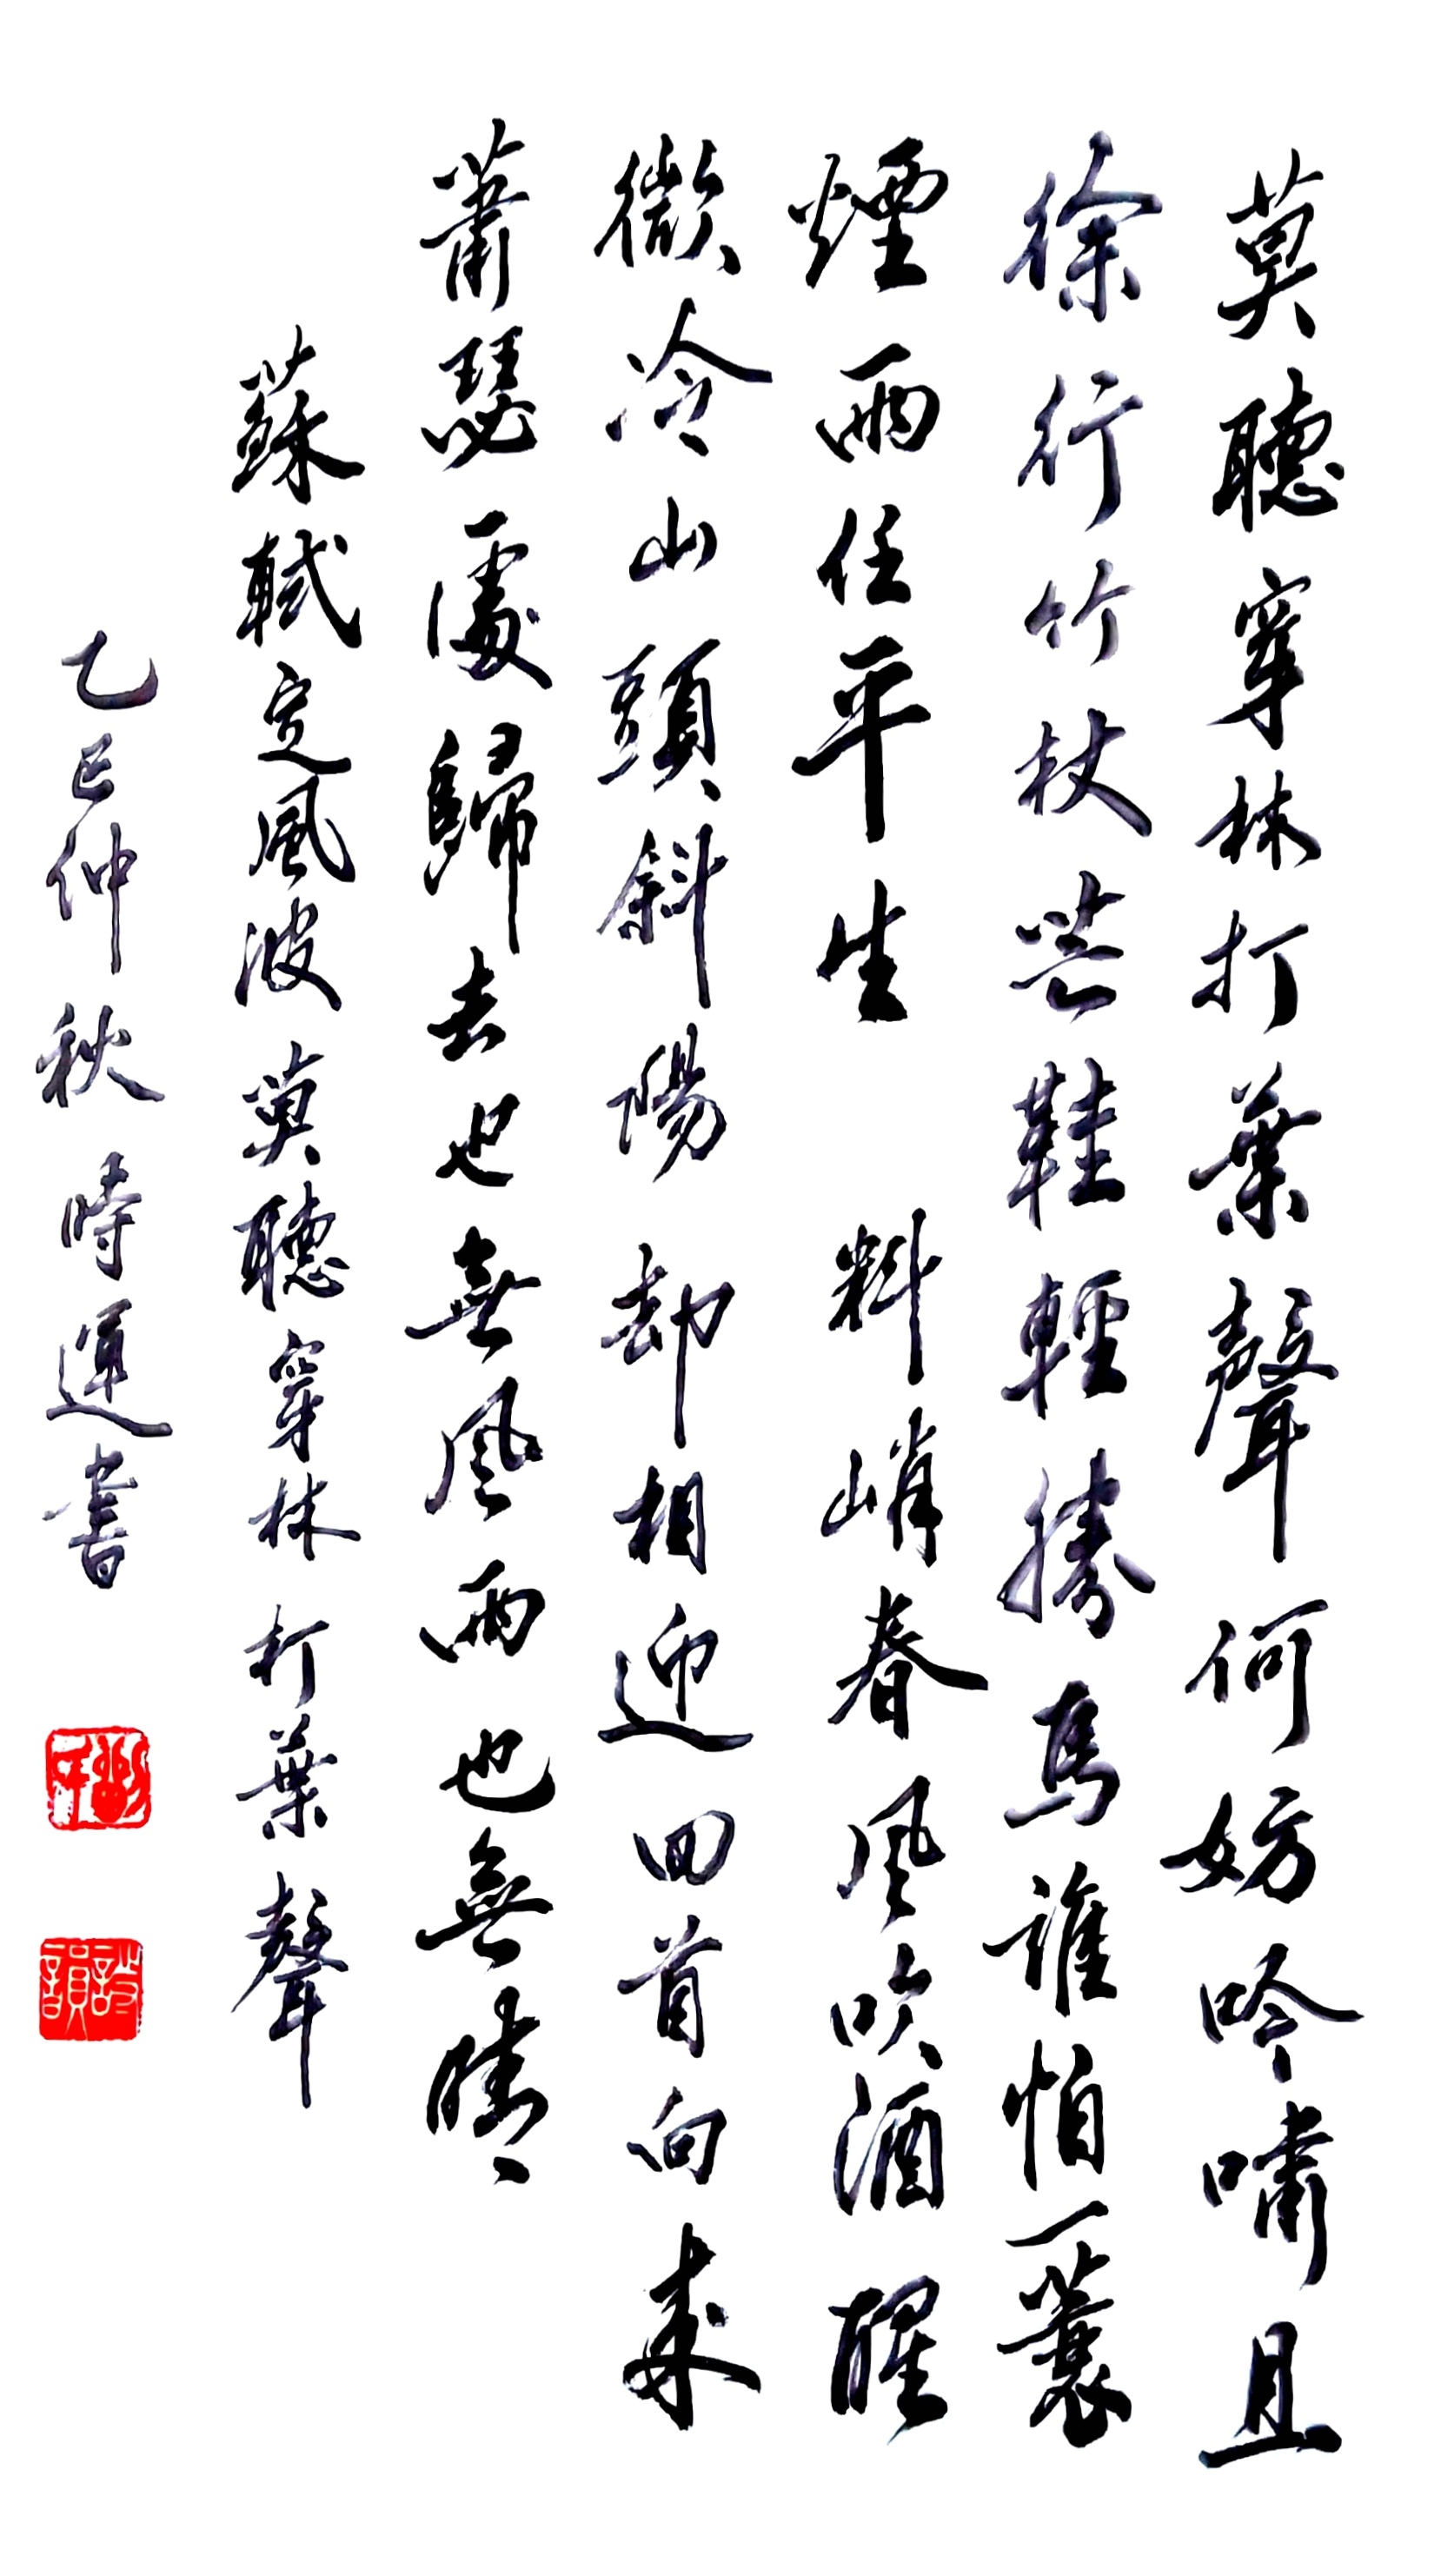 莫聽穿林打葉聲何妨吟嘯且
徐行竹杖芒鞋輕勝馬誰怕一蓑
煙雨任平生 料峭春風吹酒醒
微冷山頭斜陽却相迎回首向來
蕭瑟處歸去也無風雨也無晴
蘇軾定風波莫聽穿林打葉聲
乙巳仲秋時運書